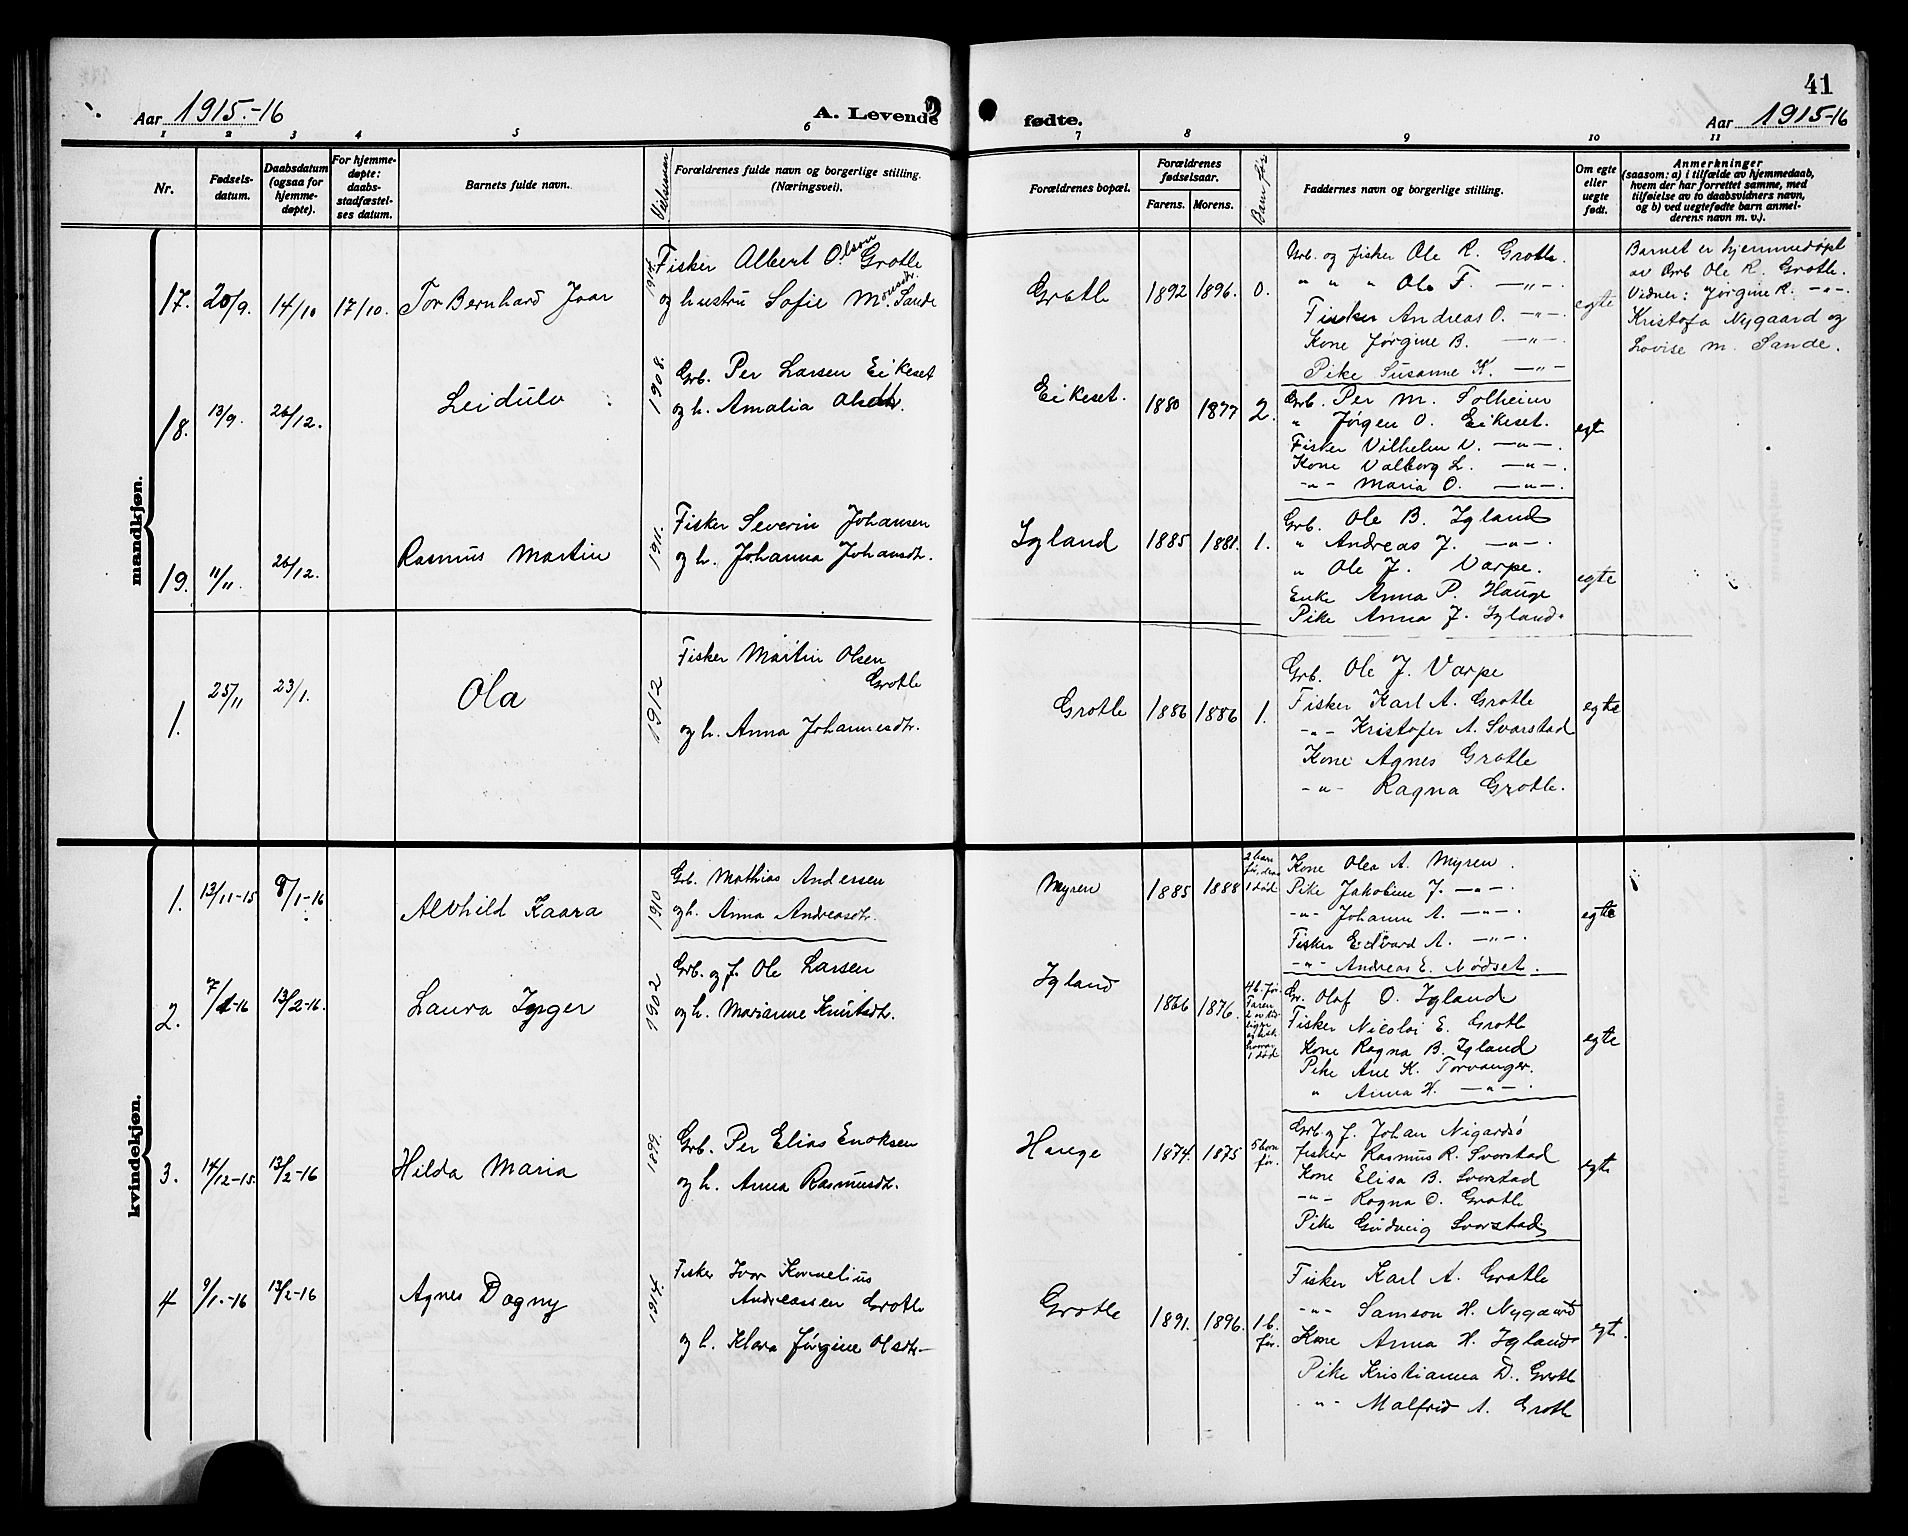 41
Aar 1915-16
A. Levende
fødte.
Aar 1915-16
1 2 3 4 5 6 7 8 9 10 11
Nr.
Fødsels-
datum.
Daabsdatum
(ogsaa for
hjemme-
døpte).
For hjemme-
døpte:
daabs-
stadfæstel-
ses datum.
Barnets fulde navn.
Vielsesaar
Forældrenes fulde navn og borgerlige stilling.
(Næringsvei).
Forældrenes bopæl.
Forældrenes
fødselsaar.
Farens. Morens.
Barn før
Faddernes navn og borgerlige stilling.
Om egte
eller
uegte
født.
Anmerkninger
(saasom: a) i tilfælde av hjemmedaab,
hvem der har forrettet samme, med
tilføielse av to daabsvidners navn,
og b) ved uegtefødte barn anmel-
derens navn m. v.).
mandkjøn.
17. 20/9. 14/10 17/10. Tor Bernhard Joar
1914.
Fisker Albert Olson Grotle
og hustru Sofie Monsdr. Sande
Grotle 1892 1896. 0.
Grb. og fisker Ole R. Grotle.
" " " Ole F. —"—.
Fisker Andreas O. —"—.
Kone Jørgine B. —"—.
Pike Susanne K. —"—
egte
Barnet er hjemmedøpt
av Grb Ole R. Grotle.
Vidner: Jørgine R. —"—.
Kristofa Nygaard og
Lovise M. Sande.
18. 13/9. 26/12. Leidulv
1908.
Grb. Per Larsen Eikeset
og h. Amalia Olsdtr.
Eikeset. 1880 1877 2.
Grb. Per M. Solheim
" Jørgen O. Eikeset.
Fisker Vilhelm V. —"—.
Kone Valborg L. —"—.
—"— Maria O. —"—.
egte
19. 11/11. 26/12. Rasmus Martin
1911.
Fisker Severin Johansen
og h. Johanna Johansdtr.
Igland 1885 1881. 1.
Grb. Ole B. Igland
" Andreas J. —"—.
" Ole J. Varpe.
Enke Anna P. Hauge
Pike Anna J. Igland.
egte
1. 25/11 23/1. Ola
1912
Fisker Martin Olsen
Grotle
og h. Anna Johannesdtr.
Grotle 1886 1886 1.
Grb. Ole J. Varpe
Fisker Karl A. Grotle
—"— Kristofer A. Svarstad
Kone Agnes Grotle
—"— Ragna Grotle.
egte
kvindekjøn.
1. 13/11-15 8/1-16 Alvhild Kaara
1910
Grb. Mathias Andersen
og h. Anna Andreasdtr.
Myren 1885 1888
2 barn
før, deraf
1 død
Kone Olea A. Myren.
Pike Jakobine J. —"—.
—"— Johanne A. —"—.
Fisker Edvard A. —"—.
—"— Andreas E. Nødset.
egte
2. 7/1-16 13/2-16. Laura Inger
1902
Grb. og f. Ole Larsen
og h. Marianne Knutsdtr.
Igland 1866 1876.
4 b. før.
1 død
Gr. Olaf O. Igland
Fisker Nicolai E. Grotle
Kone Ragna B. Igland
Pike Ane K. Torvanger.
" Anna H. —"—.
egte
3. 14/12-15. 13/2-16 Hilda Maria
1899.
Grb. Per Elias Enoksen
og h. Anna Rasmusdtr.
Hauge 1874. 1875
5 born
før.
Grb. og f. Johan Nigardsø
fisker Rasmus R. Svorstad
Kone Elisa B. Svorstad
—"— Ragna O. Grotle
Pike Gudveig Svorstad
egte
4 9/1.-16 13/2-16 Agnes Dagny
1914.
Fisker Ivar Kornelius
Andreassen Grotle
og h. Klara Jørgine Olsdtr—
Grotle 1891. 1896.
1 b.
før.
Fisker Karl A. Grotle
—"— Samson H. Nygaard
Kone Anna H. Igland
Pike Kristianna D. Grotle
—"— Malfrid A. Grotle
egte.